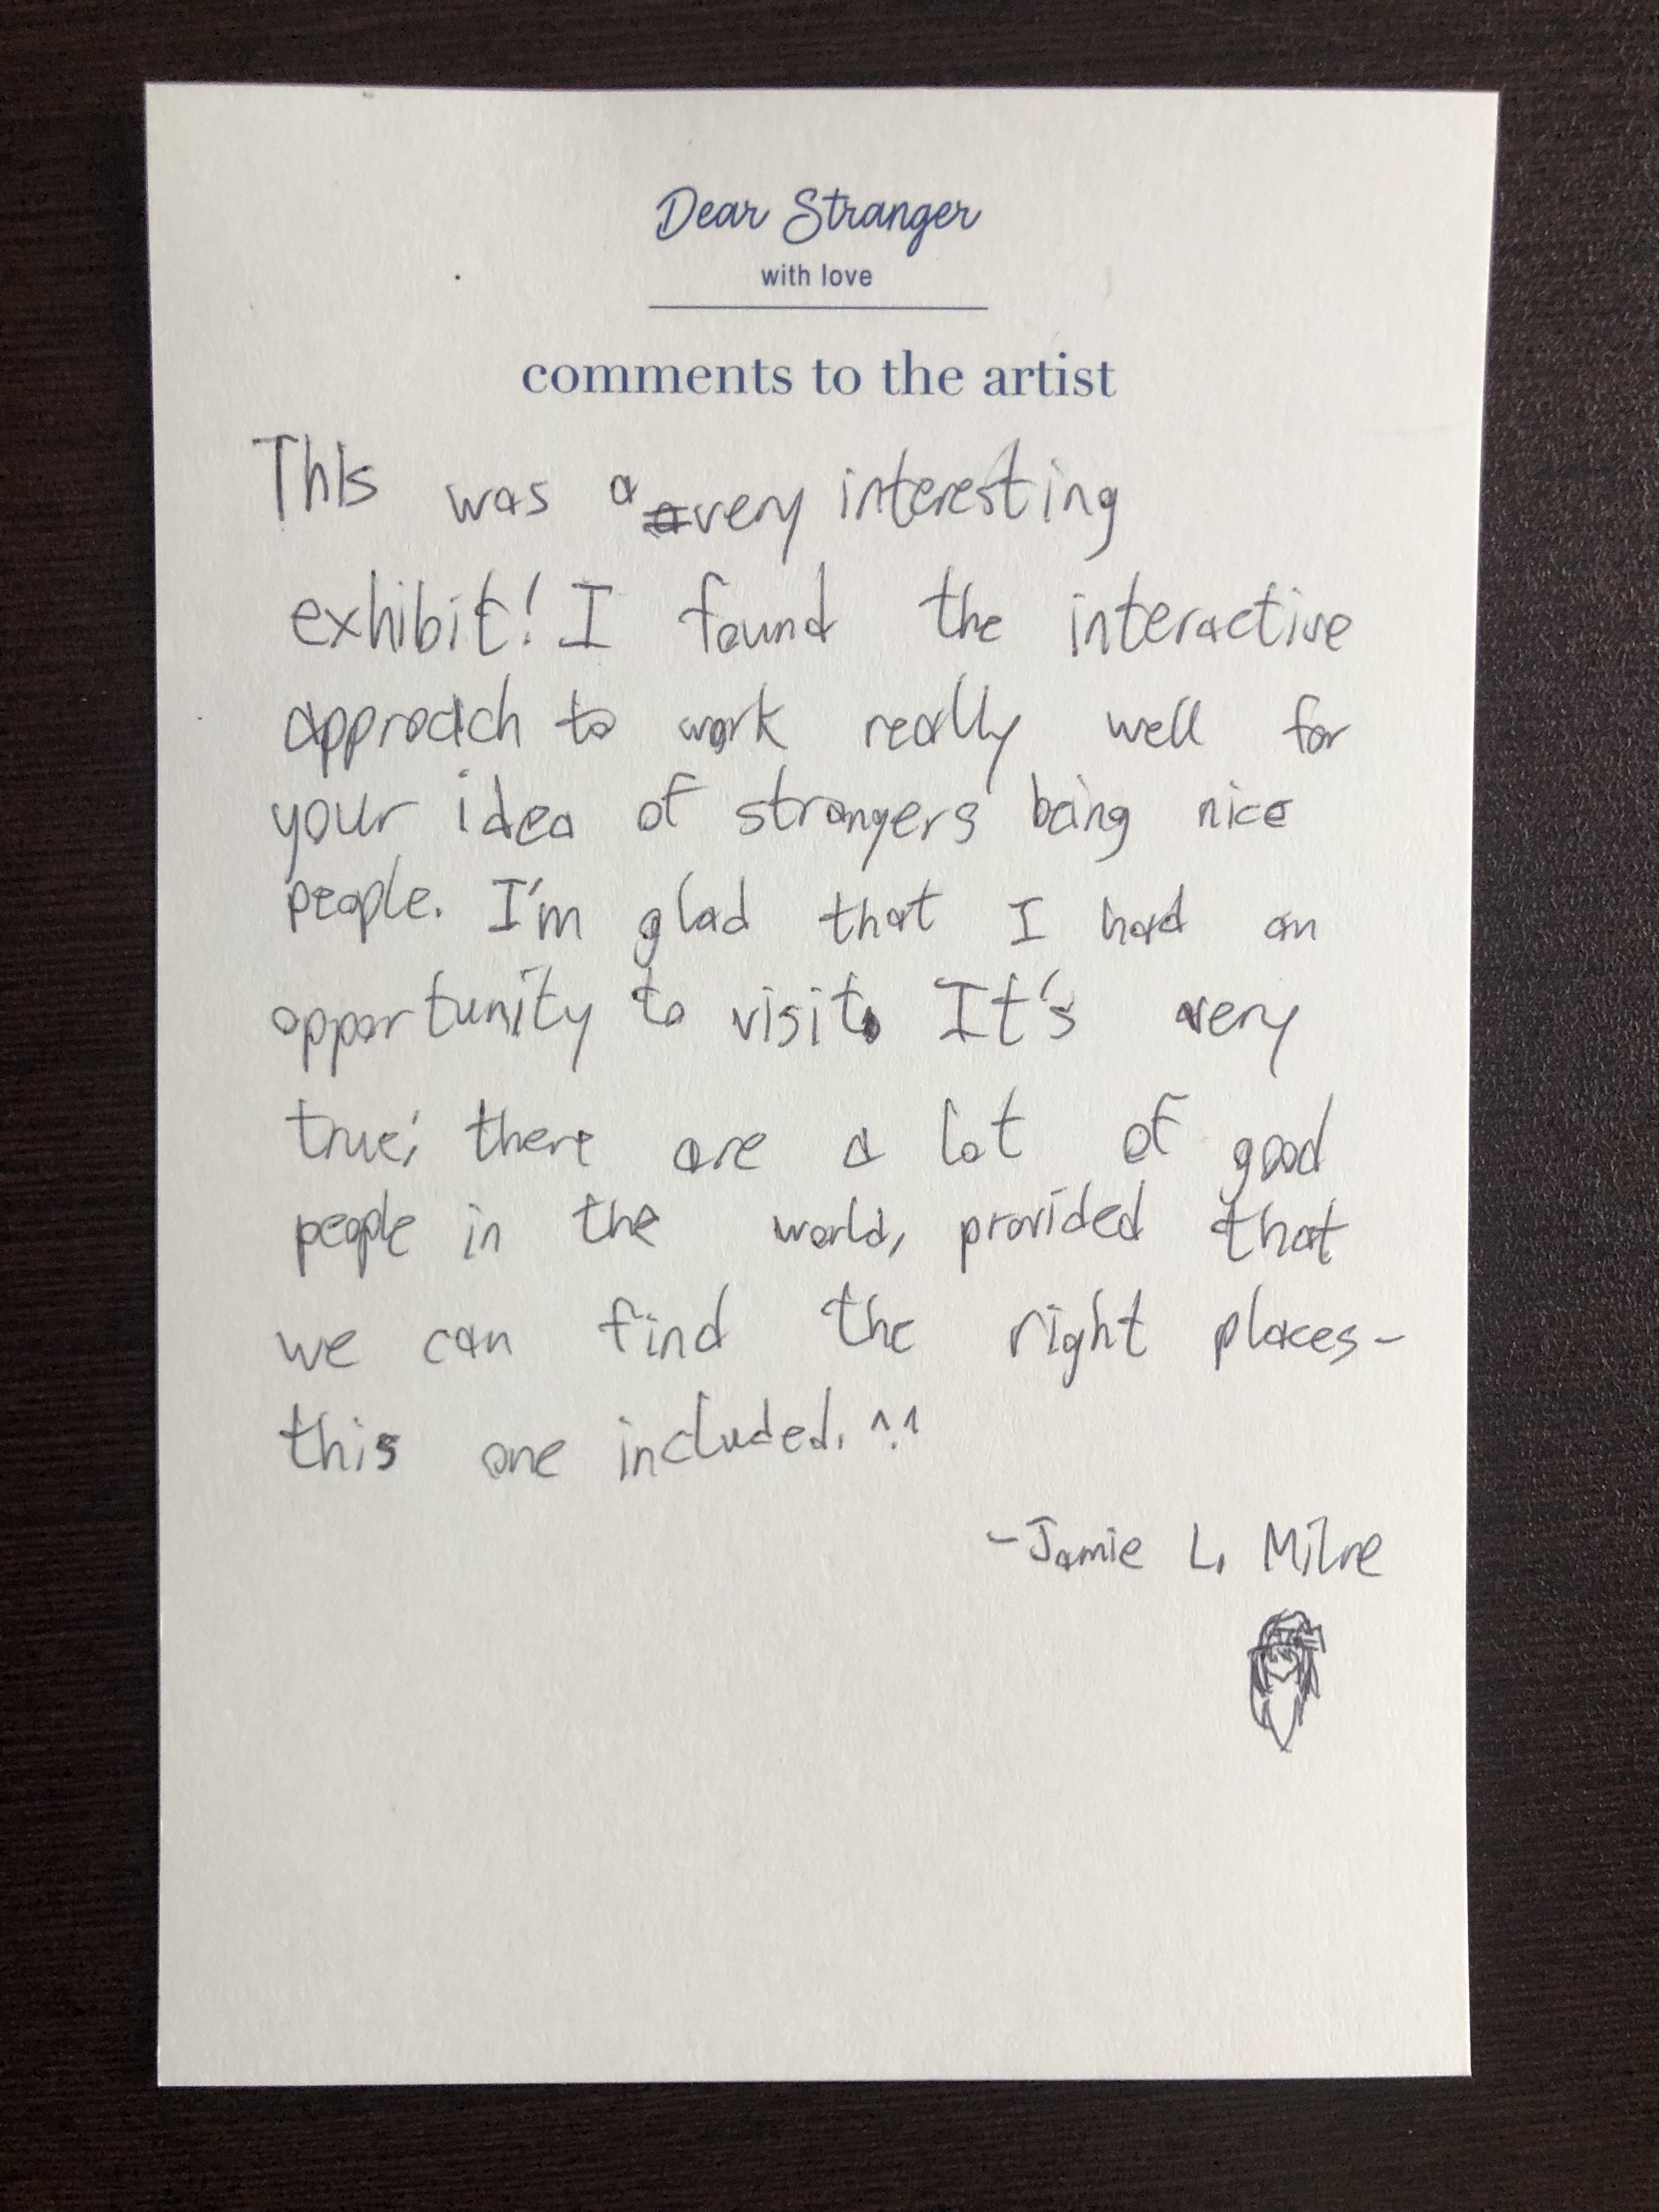 Dear Stranger
with love
comments to the artist
This was a very interesting
exhibit! I found the interactive
approach to work really well for
your idea of strangers being nice
people. I'm glad that I had an
opportunity to visit. It's very
true; there are a lot of good
people in the world, provided that
we can find the right places-
this one included. ^.^
-Jamie L. Milne